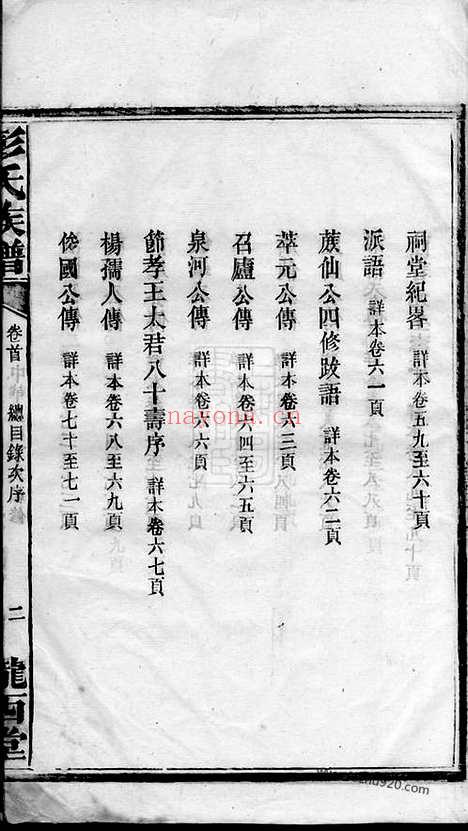 祠堂紀畧 詳本卷五九至六十頁
派語 詳本卷六一頁
蔟仙公四修跋語 詳本卷六二頁
萃元公傳 詳本卷六三頁
召廬公傳 詳本卷六四至六五頁
泉河公傳 詳本卷六六頁
節孝王太君八十壽序 詳本卷六七頁
楊孺人傳 詳本卷六八至六九頁
俊國公傳 詳本卷七十至七一頁
彭氏族譜 卷首 總目錄次序 二 隴西堂
nayona.cn